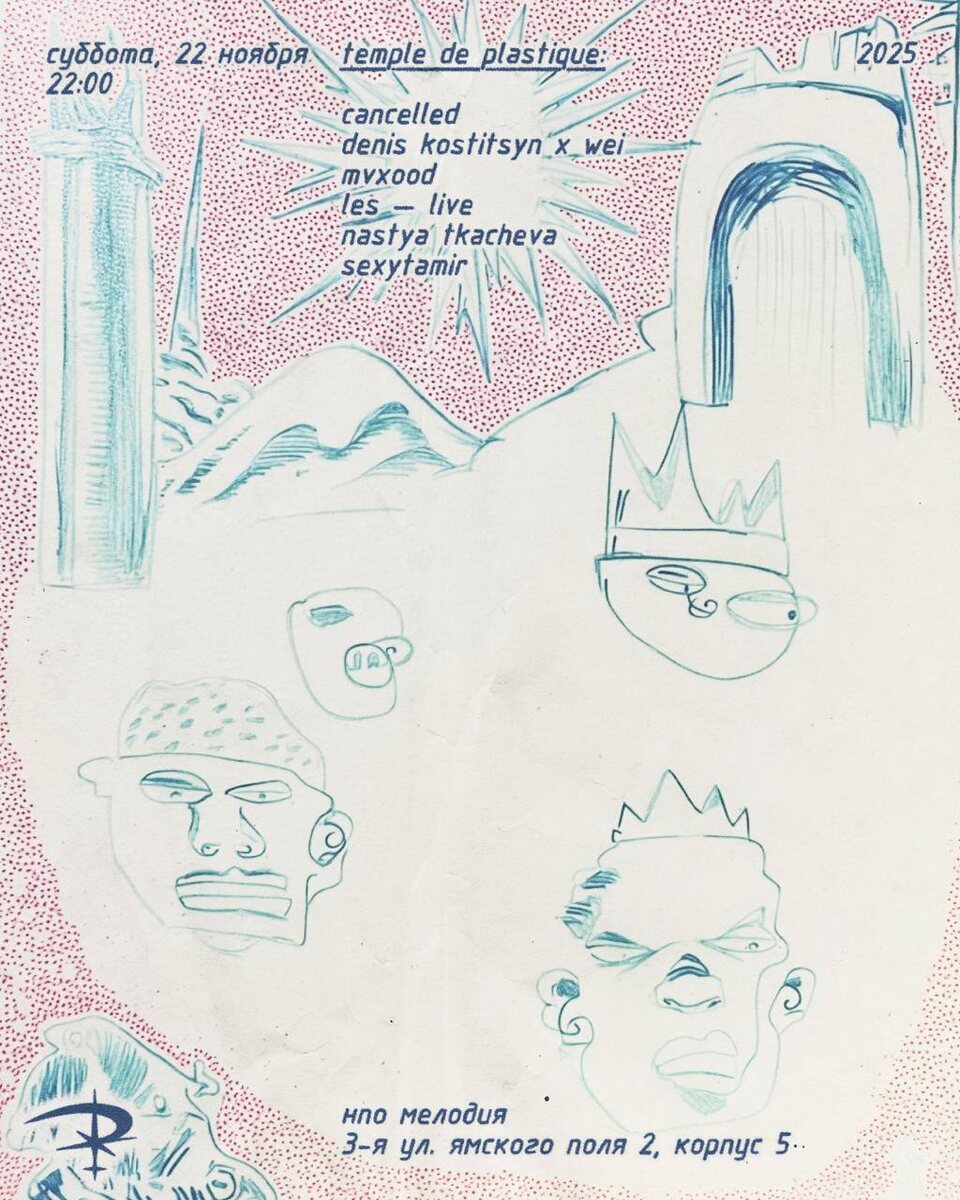 суббота, 22 ноября
22:00
temple de plastique:
cancelled
denis kostitsyn x wei
mvxood
les — live
nastya tkacheva
sexytamir
2025
нпо мелодия
3-я ул. ямского поля 2, корпус 5